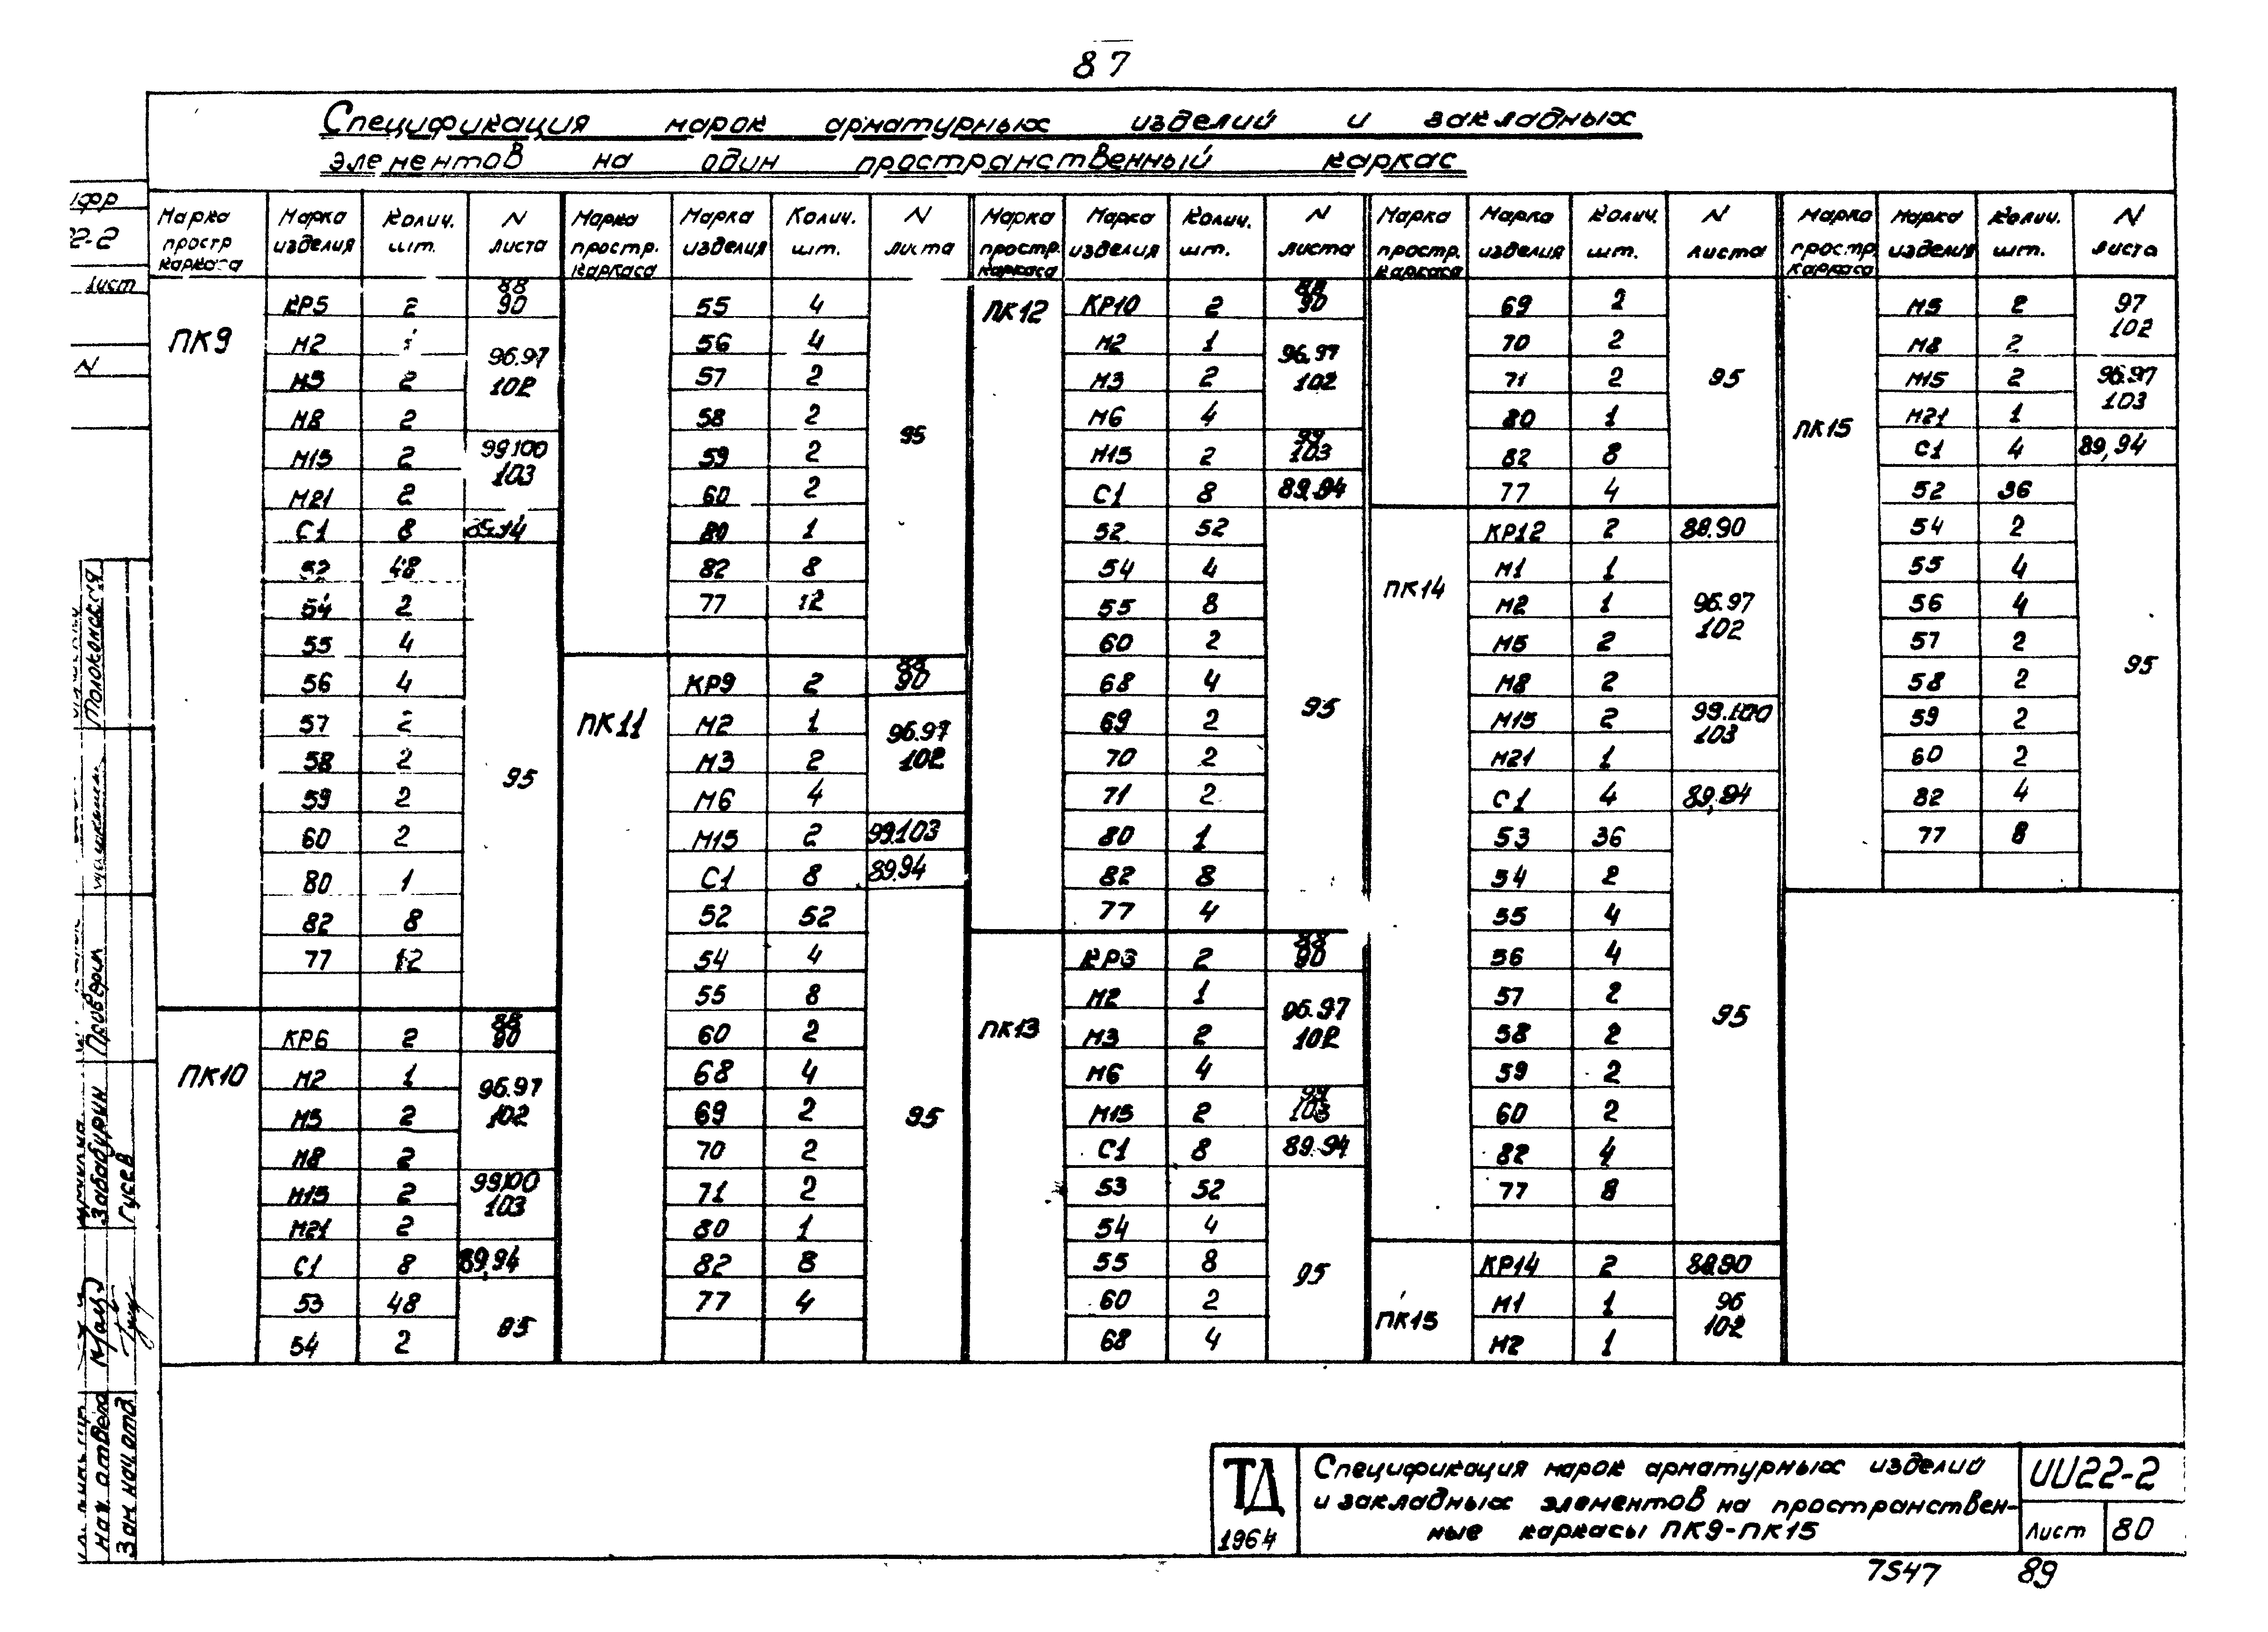 87
Спецификация марок арматурных изделий и закладных
элементов на один пространственный каркас
Марка простр каркаса | Марка изделия | Колич. шт. | N листа
ПК9
КР5 2 88 90
М2
М5 2 96.97 102
М8 2
М15 2 99.100 103
М21 2
С1 8
52 48 95
54 2
55 4
56 4
57 2
58 2
59 2
60 2
80 1
82 8
77 12
ПК10
КР6 2 88 90
М2 1 96.97 102
М5 2
М8 2
М15 2 99.100 103
М21 2
С1 8 89,94
53 48 95
54 2
Марка простр. каркаса | Марка изделия | Колич. шт. | N листа
55 4 95
56 4
57 2
58 2
59 2
60 2
80 1
82 8
77 12
ПК11
КР9 2 88 90
М2 1 96.97 102
М3 2
М6 4
М15 2 99.103
С1 8 89.94
52 52 95
54 4
55 8
60 2
68 4
69 2
70 2
71 2
80 1
82 8
77 4
Марка простр. каркаса | Марка изделия | Колич. шт. | N листа
ПК12
КР10 2 88 90
М2 1 96.97 102
М3 2
М6 4
М15 2 99 103
С1 8 89.94
52 52 95
54 4
55 8
60 2
68 4
69 2
70 2
71 2
80 1
82 8
77 4
ПК13
КР3 2 88 90
М2 1 96.97 102
М3 2
М6 4
М15 2 99 103
С1 8 89.94
53 52 95
54 4
55 8
60 2
68 4
Марка простр. каркаса | Марка изделия | Колич. шт. | N листа
69 2 95
70 2
71 2
80 1
82 8
77 4
ПК14
КР12 2 88.90
М1 1 96.97 102
М2 1
М5 2
М8 2
М15 2 99.100 103
М21 1
С1 4 89,94
53 36 95
54 2
55 4
56 4
57 2
58 2
59 2
60 2
82 4
77 8
ПК15
КР14 2 88.90
М1 1 96 102
М2 1
Марка простр. каркаса | Марка изделия | Колич. шт. | N листа
ПК15
М5 2 97 102
М8 2
М15 2 96.97 103
М21 1
С1 4 89,94
52 36 95
54 2
55 4
56 4
57 2
58 2
59 2
60 2
82 4
77 8
Лист
N
Проверил
Забабурин
Гусев
Зам нач отд
ТД
1964
Спецификация марок арматурных изделий
и закладных элементов на пространствен-
ные каркасы ПК9-ПК15
ИИ22-2
Лист 80
7547 89